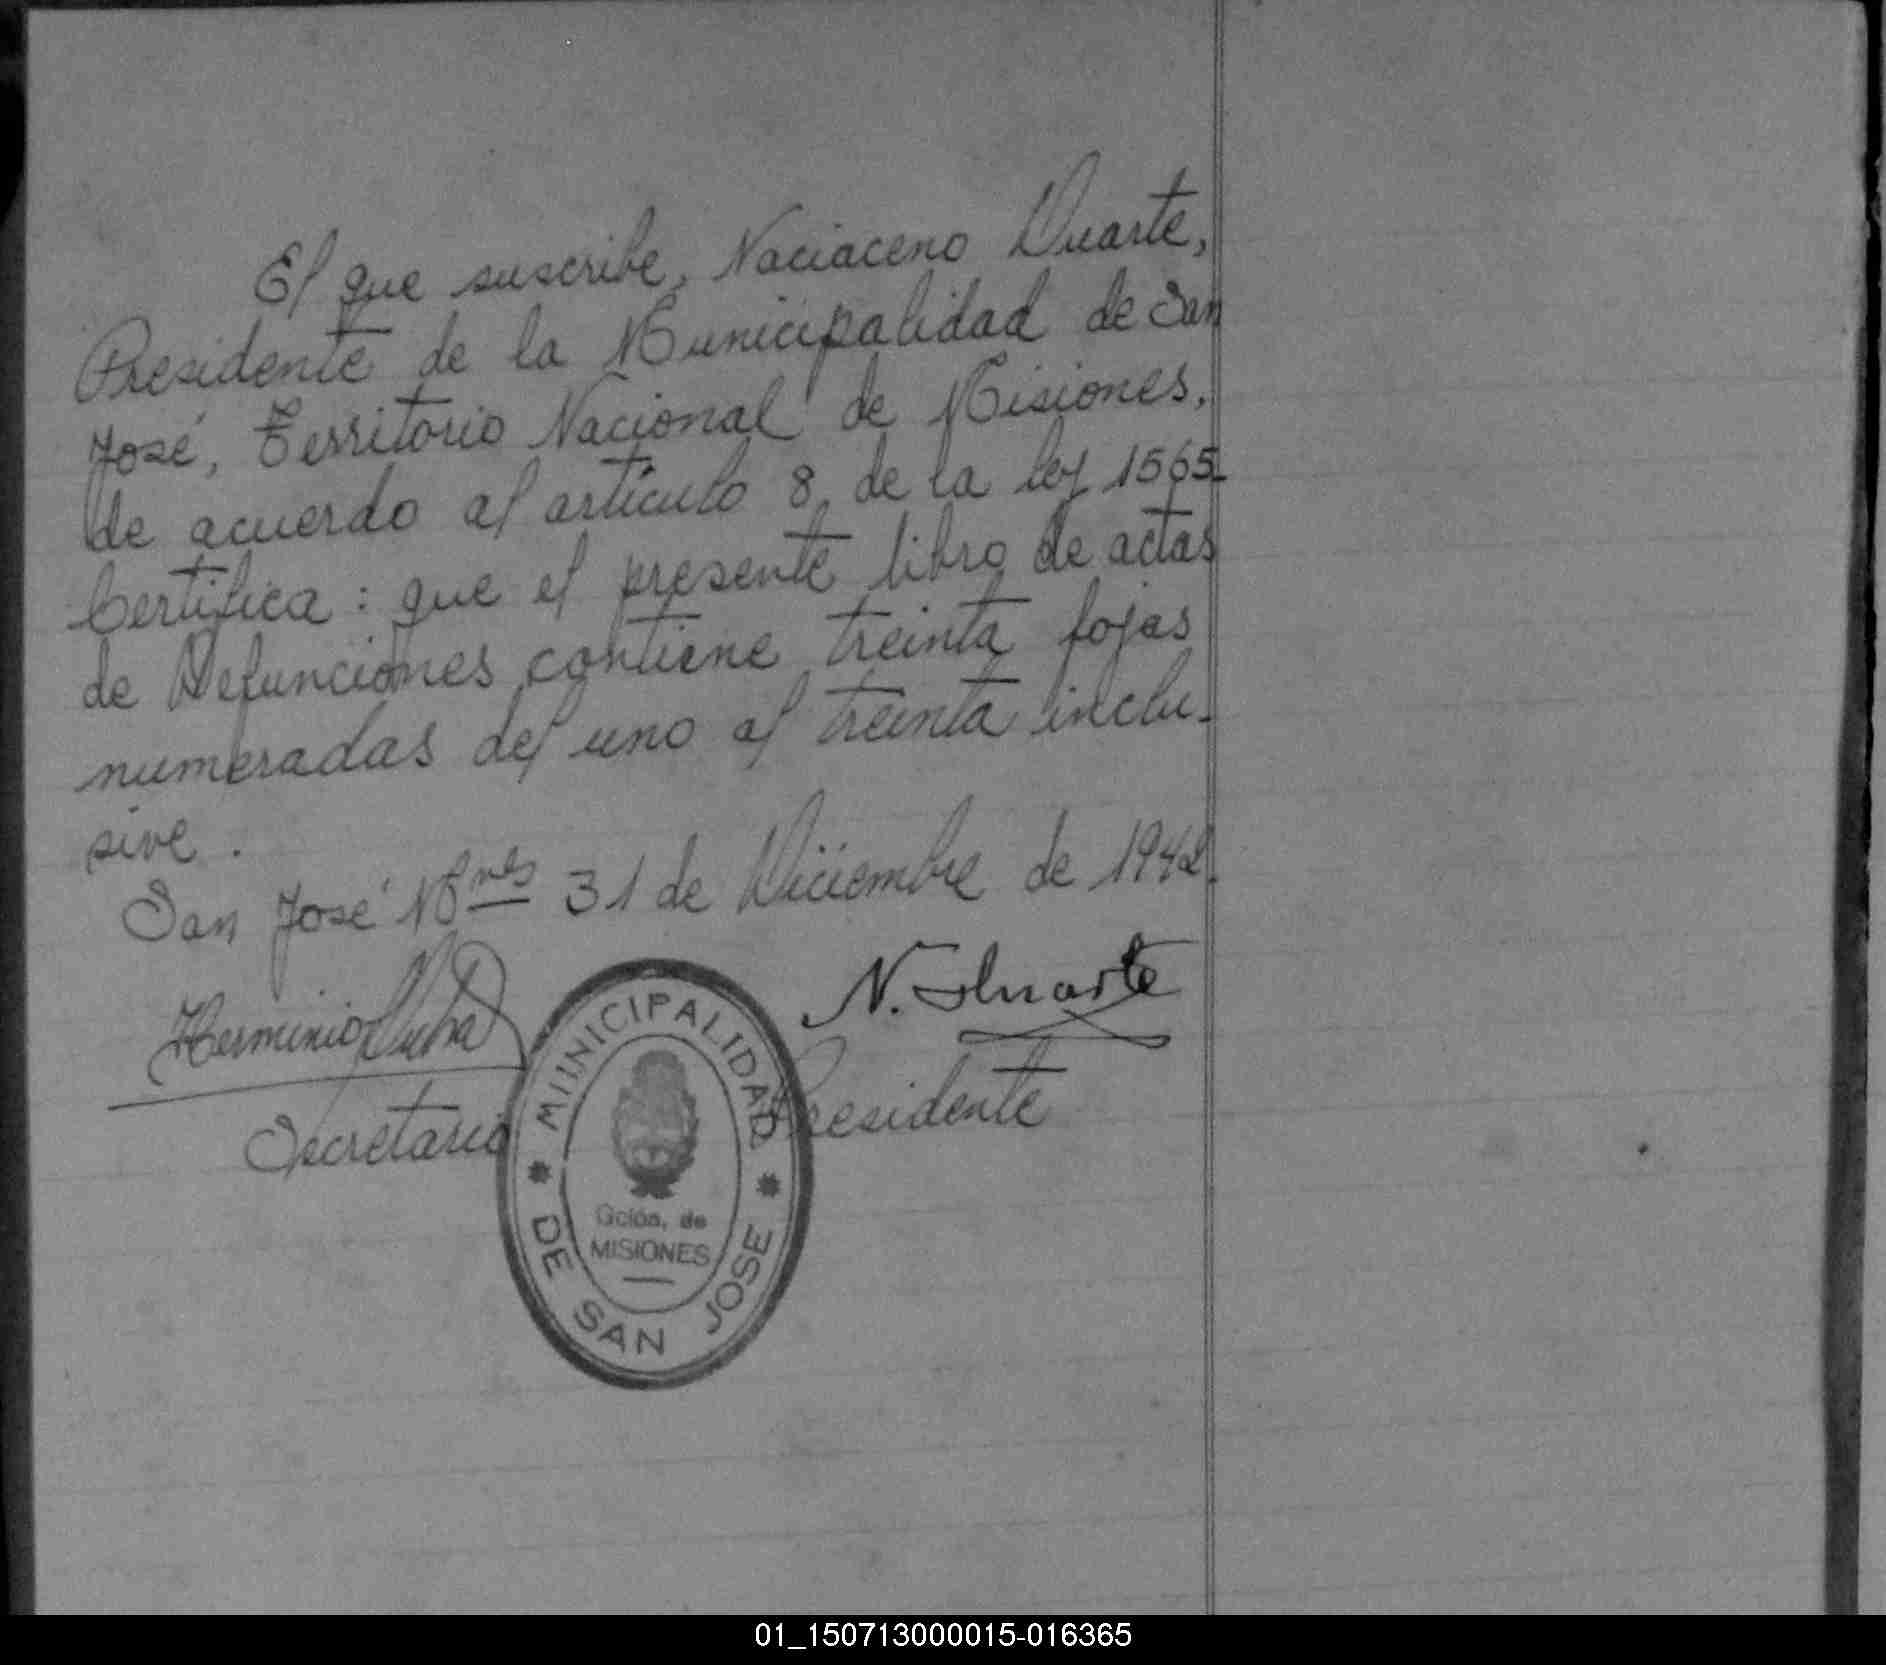 El que suscribe, Naciaceno Duarte,
Presidente de la Municipalidad de San
José, Territorio Nacional de Misiones,
de acuerdo al artículo 8, de la ley 1565-
Certifica: que el presente libro de actas
de Defunciones contiene treinta fojas
numeradas del uno al treinta inclu-
sive.
San José Mnes 31 de Diciembre de 1942.
Herminio
N. Duarte
Secretario
Presidente
MUNICIPALIDAD
DE SAN JOSE
Gción. de
MISIONES
01_150713000015-016365